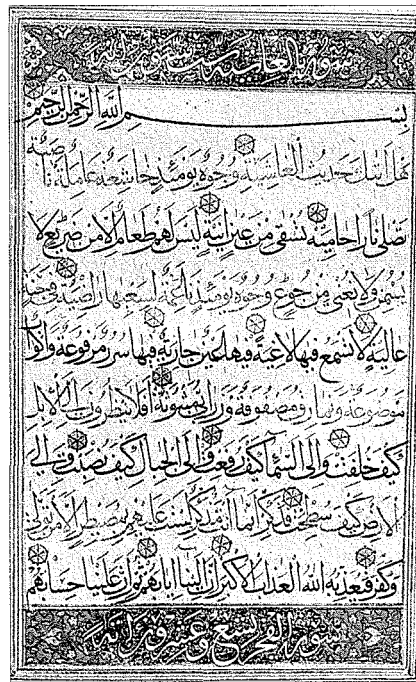 سورة الغاشية ست وعشرون اية
بسم الله الرحمن الرحيم
هل اتيك حديث الغاشية وجوه يومئذ خاشعة عاملة ناصبة
تصلى نارا حامية تسقى من عين انية ليس لهم طعام الا من ضريع لا
يسمن ولا يغنى من جوع وجوه يومئذ ناعمة لسعيها راضية فى جنة
عالية لا تسمع فيها لاغية فيها عين جارية فيها سرر مرفوعة واكواب
موضوعة ونمارق مصفوفة وزرابى مبثوثة افلا ينظرون الى الابل
كيف خلقت والى السماء كيف رفعت والى الجبال كيف نصبت والى
الارض كيف سطحت فذكر انما انت مذكر لست عليهم بمصيطر الا من تولى
وكفر فيعذبه الله العذاب الاكبر ان الينا ايابهم ثم ان علينا حسابهم
سورة الفجر تسع وعشرون اية